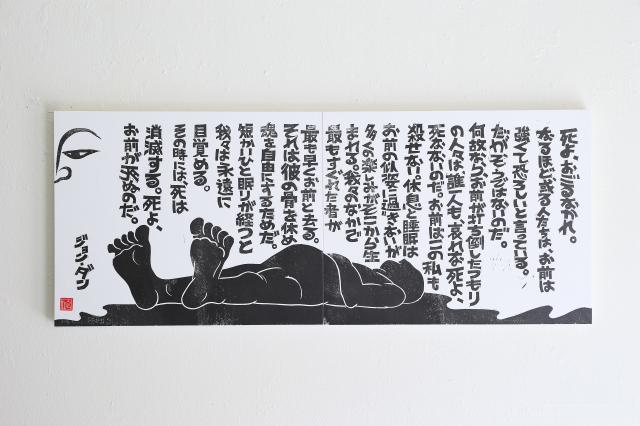 死よ、おごるなかれ。
なるほど或る人たちは、お前は
強くて恐ろしいと言っている。
だがそうではないのだ。
何故ならお前が打ち倒したつもり
の人々は誰一人も、哀れな死よ、
死なないのだ。お前はこの私も
殺せない。休息と睡眠は
お前の似姿に過ぎないが
多くの楽しみがそこから生
まれる。我々のなかで
最もすぐれた者が
最も早くお前と去る。
それは彼の骨を休め
魂を自由にするためだ。
短かいひと眠りが経つと
我々は永遠に
目覚める。
その時には、死は
消滅する。死よ、
お前が死ぬのだ。
ジョン・ダン